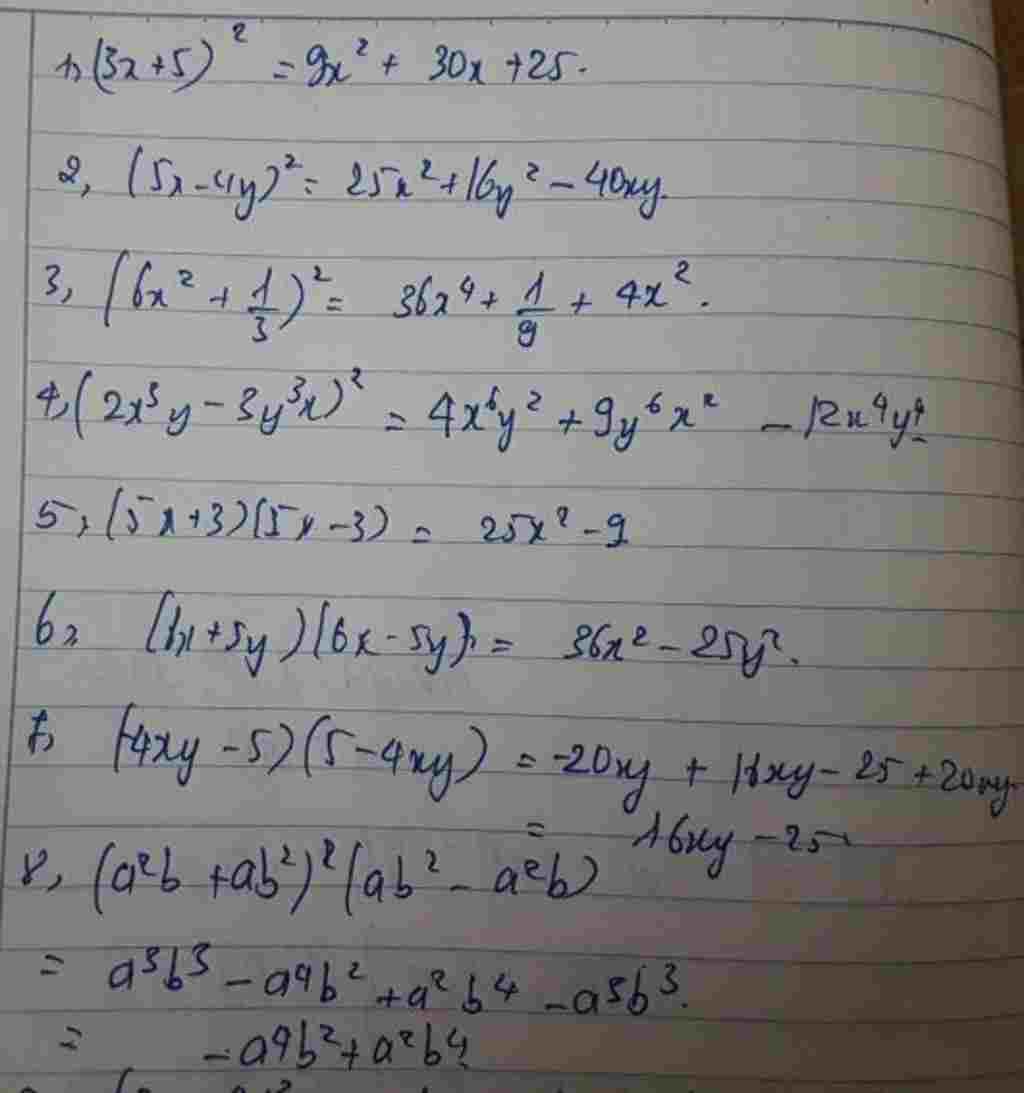 1, (3x+5)² = 9x² + 30x + 25.
2, (5x-4y)² = 25x² + 16y² - 40xy.
3, (6x² + 1/3)² = 36x⁴ + 1/9 + 4x².
4, (2x³y - 3y³x)² = 4x⁶y² + 9y⁶x² - 12x⁴y⁴
5, (5x+3)(5x-3) = 25x² - 9
6, (6x+5y)(6x-5y) = 36x² - 25y².
7, (-4xy - 5)(5 - 4xy) = -20xy + 16xy - 25 + 20xy.
= 16xy - 25
8, (a²b + ab²)²(ab² - a²b)
= a³b³ - a⁴b² + a²b⁴ - a³b³.
= - a⁴b² + a²b⁴.